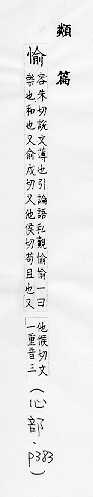 類篇
愉
容朱切說文薄也引論語私觀愉愉一曰
樂也和也又俞戍切又他侯切苟且也又
他候切文
一重音三
（心部、p383）